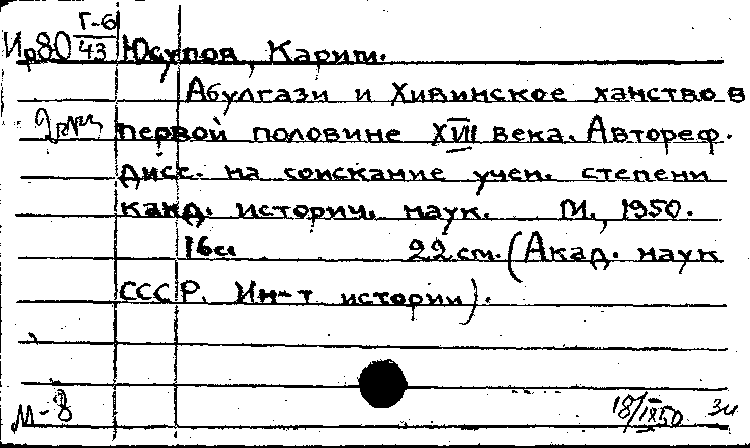 Г-6
Ир80 43 Юсупов, Карим.
Абулгази и Хивинское ханство в
2экз первой половине XVII века. Автореф.
дисс. на соискание учен. степени
канд. историч. наук. М., 1950.
16с. 22 см. (Акад. наук
СССР. Ин-т истории).
М-8 18/IX50